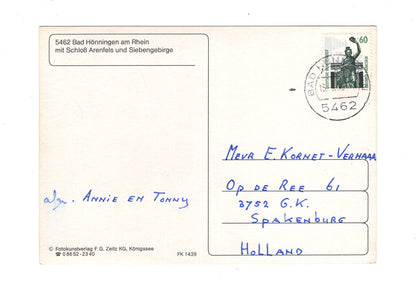 5462 Bad Hönningen am Rhein
mit Schloß Arenfels und Siebengebirge
60
BAD
5462
Mevr E. Kornet-Verhaar
Op de Ree 61
3752 G.K.
Spakenburg
Holland
Annie en Tonny
© Fotokunstverlag F.G. Zeitz KG, Königssee
☎ 08652-2340
FK 1439